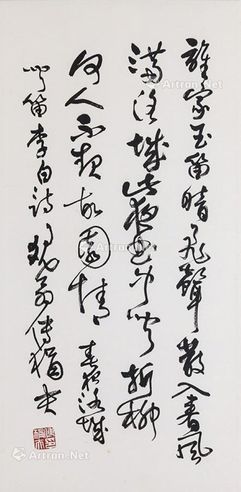 誰家玉笛暗飛聲散入春風
滿洛城此夜曲中聞折柳
何人不起故園情 春夜洛城
聞笛李白詩 覺翁傅狷夫
Artron.Net